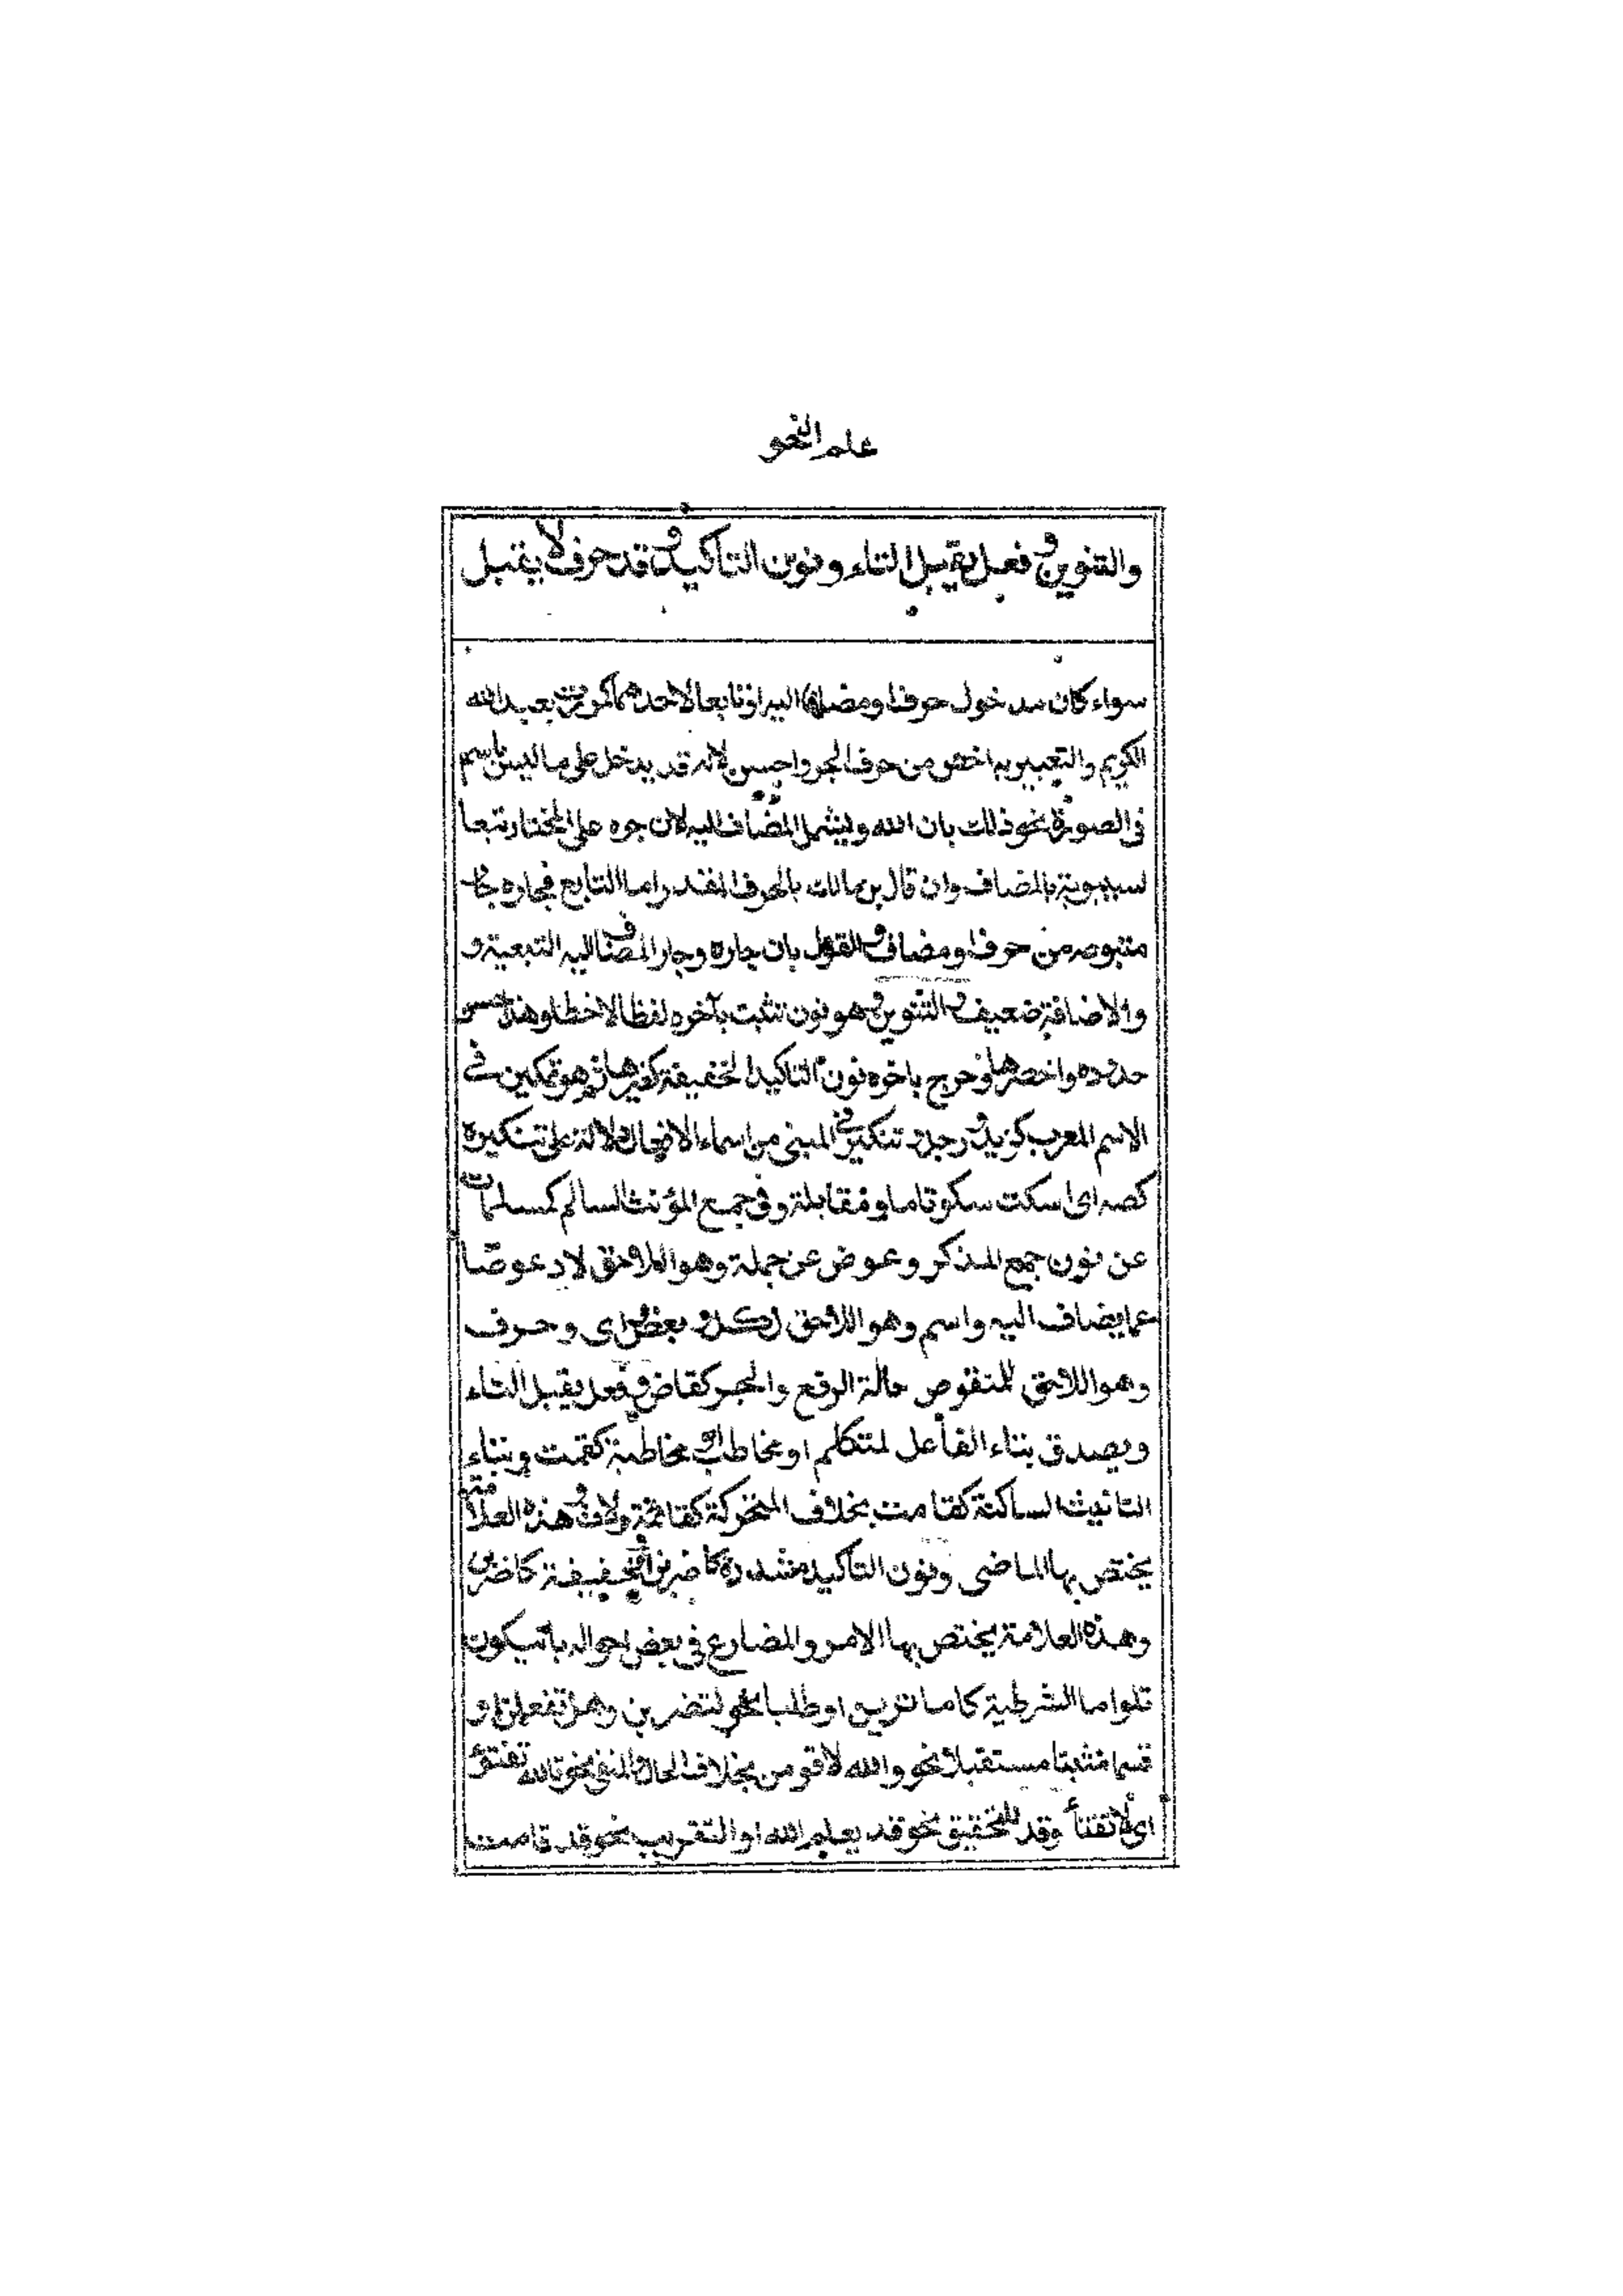 علم النحو
والتنوين وفعل يقبل التاء ونون التاكيد وقد وحرف لا يقبل
سواء كان مدخول حرف او مضاف اليه او تابعا لاحدهما كمررت بعبد الله
الكريم والتعبير به اخص من حرف الجر واحسن لانه قد يدخل على ما ليس باسم
في الصورة نحو ذلك بان الله وليشمل المضاف اليه لان جره على المختار تبعا
لسيبويه بالمضاف وان قال بن مالك بالحرف المقدر اما التابع فجاره جار
متبوعه من حرف او مضاف والقول بان جاره وجار المضاف اليه التبعية و
والاضافة ضعيف والتنوين وهو نون تثبت بآخره لفظا لا خطا وهذا احسن
حدوده واخصرها وخرج باخره نون التاكيد الخفيفة كغيرها ثم هو تمكين في
الاسم المعرب كزيد ورجل وتنكير في المبنى من اسماء الافعال دلالة على تنكيره
كصه اى اسكت سكوتا ما ومقابلة وفى جمع المؤنث السالم كمسلمات
عن نون جمع المذكر وعوض عن جملة وهو اللاحق لاذ عوضا
عما يضاف اليه واسم وهو اللاحق لكل و بعض واى وحرف
وهو اللاحق للمنقوص حالة الرفع والجر كقاض وفعل يقبل التاء
ويصدق بتاء الفاعل لمتكلم او مخاطب او مخاطبة كقمت وبتاء
التانيث الساكنة كقامت بخلاف المتحركة كقائمة ولات وهذه العلامة
يختص بها الماضى ونون التاكيد مشددة كاضربن او خفيفة كاضربن
وهذه العلامة يختص بها الامر والمضارع فى بعض احواله بان يكون
تلو اما الشرطية كاما ترين او طلبا نحو لتضربن وهل تفعلن او
قسما مثبتا مستقبلا نحو والله لاقومن بخلاف الحال والمنفى نحو تالله تفتؤ
اى لا تفتأ وقد للتحقيق نحو قد يعلم الله او التقريب نحو قد قامت